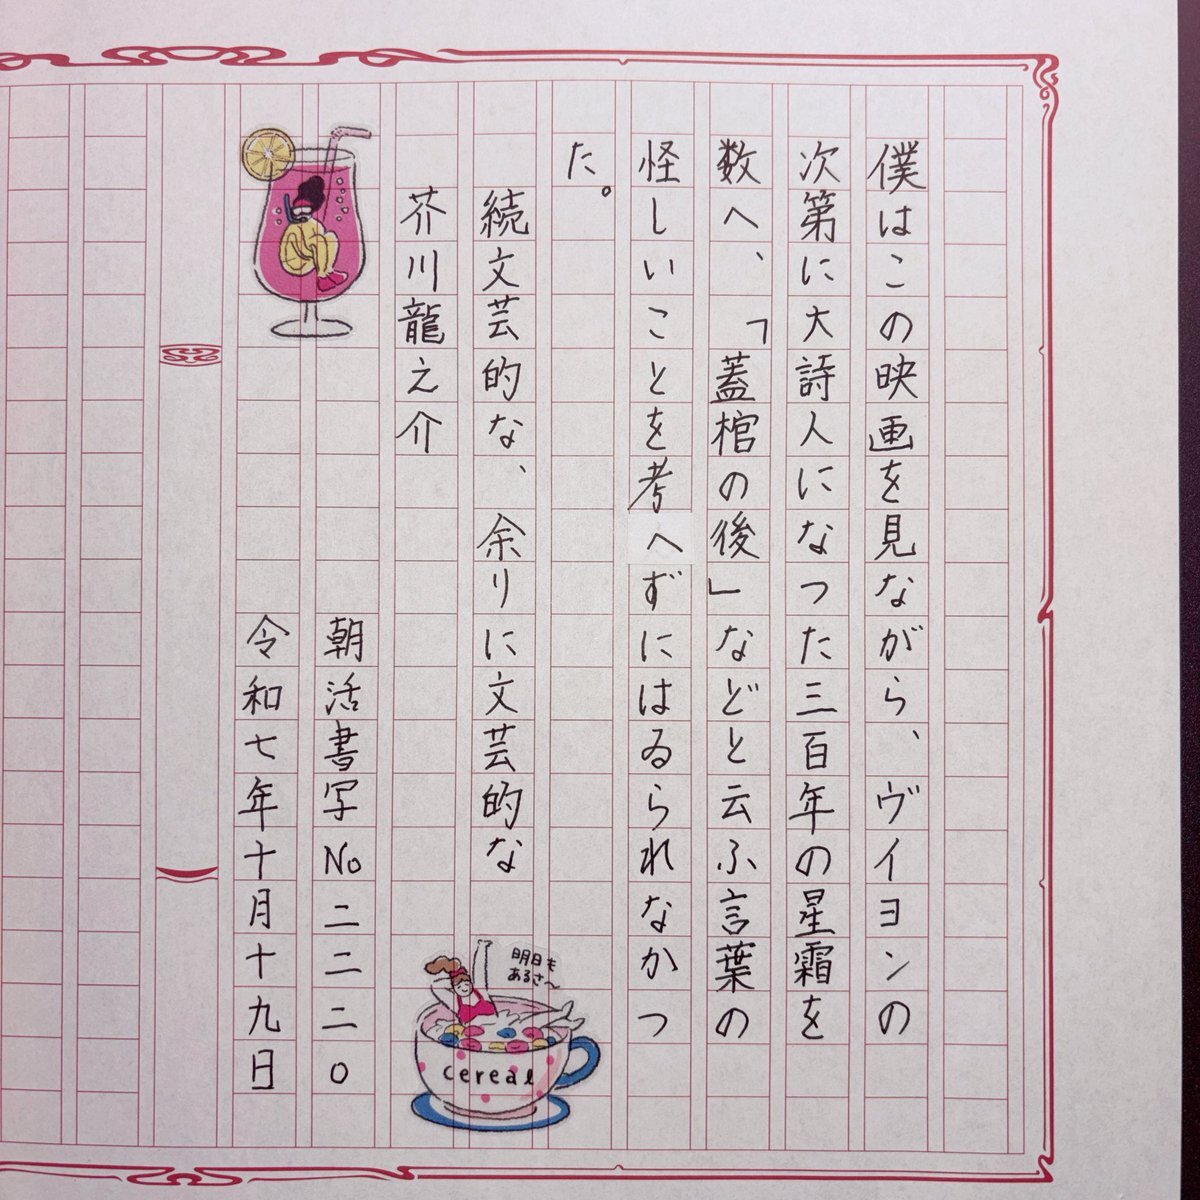 僕はこの映画を見ながら、ヴイヨンの
次第に大詩人になつた三百年の星霜を
数へ、「蓋棺の後」などと云ふ言葉の
怪しいことを考へずにはゐられなかつ
た。
続文芸的な、余りに文芸的な
芥川龍之介
朝活書写No二二二〇
令和七年十月十九日
明日も
あるさ〜
cereal